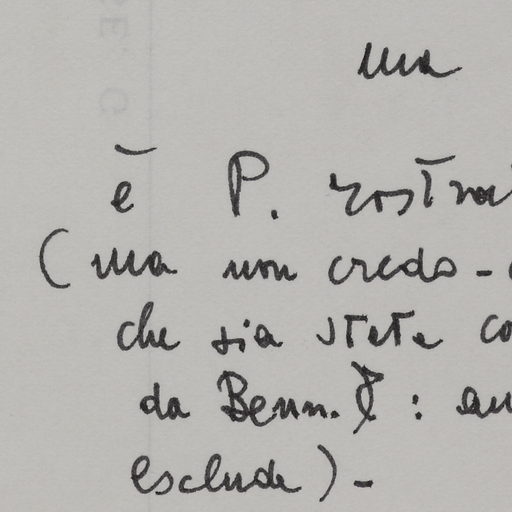 ma
è P. rostrat
(ma non credo -
che sia stata co
da Benn. : an
esclude) -